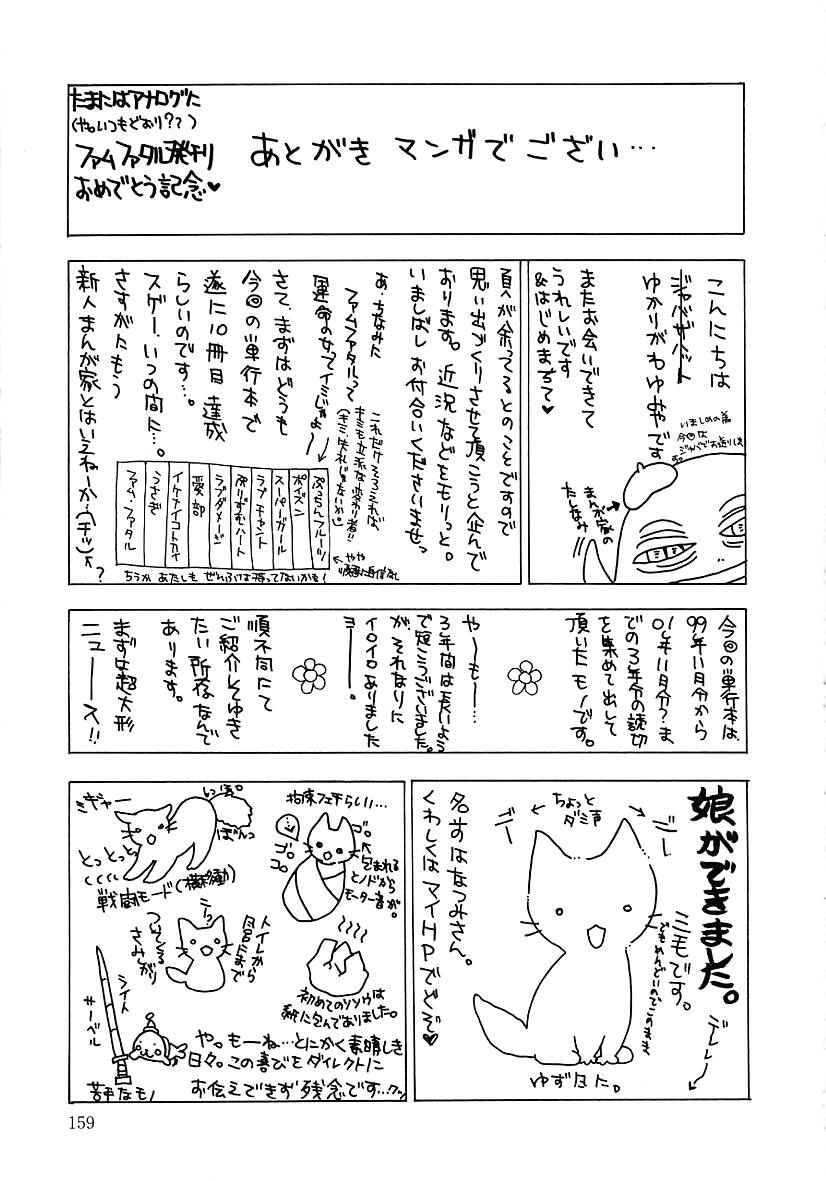 たまにはアナログに
(や。いつもどおり?て)
ファムファタル発刊
おめでとう記念♥
あとがき マンガで ござい…
こんにちは
ジャバザハット
ゆかりがわゆめやです
またお会いできて
うれしいです
&はじめまちて♥
いましめの為
今回は
ジャバでお送りします。
まんが家の
たしなみ
頁が余ってるとのことですので
思い出づくりさせて頂こうと企んで
おります。近況などをモリっと。
いましばしお付合いくださいませっ
あ、ちなみに
ファムファタルって
運命の女ってイミじゃよ〜
これだけそろえれば
キミも立派な変わり者!!
(キミ失礼じゃないか。)
さて、まずはどうも
今回の単行本で
遂に10冊目達成
らしいのです…。
スゲー、いつの間に…。
さすがにもう
新人まんが家とはいえねーか…(チッ)
ぷっちんフルーツ
ポイズン
スーパーガール
ラブチャント
ぷりずむハート
ラブダメージ
愛・部
イケナイコトカイ
うさぎ
ファム・ファタル
←やや
順番に自信なし
ちうか あたしも ぜんぶは持ってないかも!
今回の単行本は、
99年11月分から
01年11月分?ま
での3年分の読切
を集めて出して
頂いたモノです。
やーもー…
3年間は長いよう
で短こうございました。
が、それなりに
イロイロありました
ヨー。
順不同にて
ご紹介してゆき
たい所存なんで
あります。
まずは超大形
ニュース!!
娘ができました。
デレレ〜
ミモです。
でもめんどいのでこのまま
ちょっと
ダミ声
ゔー
ゔー
名前はなつみさん。
くわしくはマイHPでどぞ♥
ゆず日に。
拘束フェチらしい…
ゴロ。
ゴロ
ゴロ
包まれる
とノドから
モーター音が。
ミギャー
しっぽ。
ぼんっ
とっとっと
戦闘モード(横移動)
トイレから
風呂まで
ついてくる
さみしがり
初めてのソソウは
紙に包んでありました。
ライト
サーベル
苦手なモノ
や。もーね…とにかく素晴しき
日々。この喜びをダイレクトに
お伝えできず残念です…クッ
159